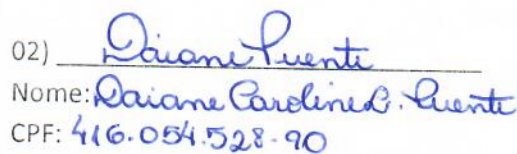 02) Daiane Puente
Nome: Daiane Caroline D. Puente
CPF: 416.054.528-90